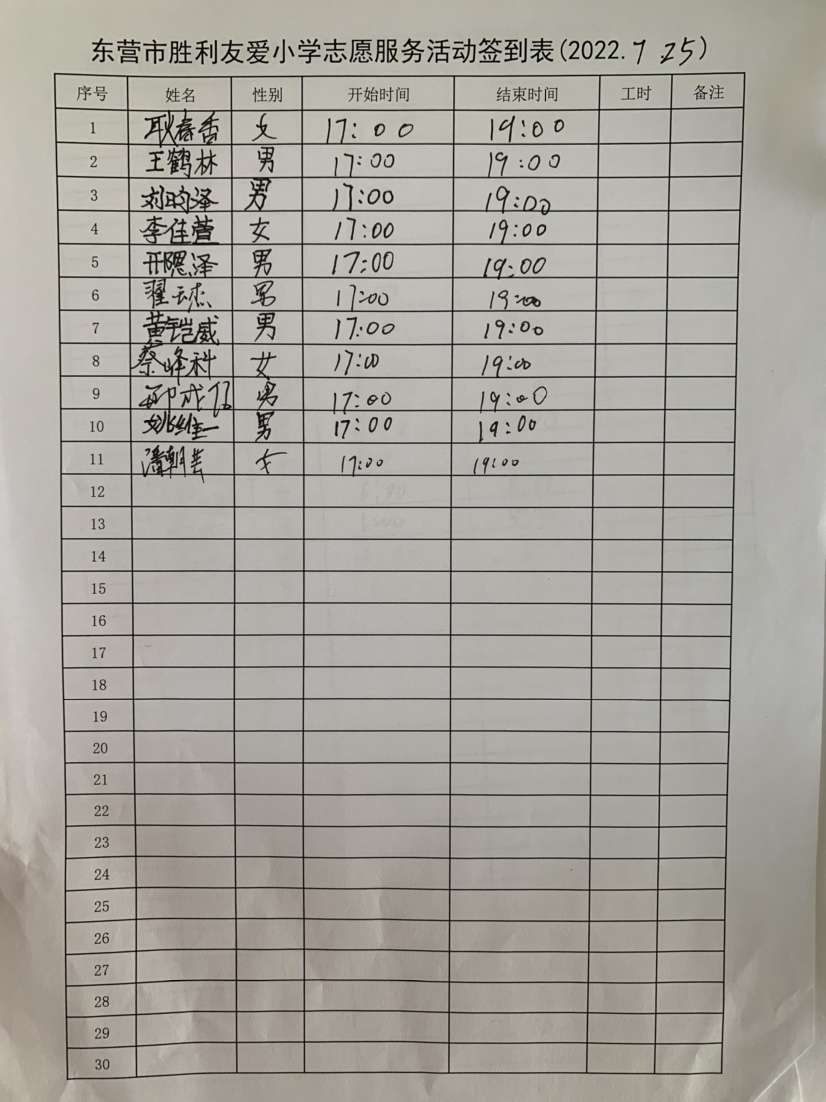 东营市胜利友爱小学志愿服务活动签到表(2022.7 25)
序号 姓名 性别 开始时间 结束时间 工时 备注
1 耿春香 女 17:00 19:00
2 王鹤林 男 17:00 19:00
3 刘昀泽 男 17:00 19:00
4 李佳萱 女 17:00 19:00
5 泽 男 17:00 19:00
6 翟 杰 男 17:00 19:00
7 黄铠威 男 17:00 19:00
8 蔡峰科 女 17:00 19:00
9 成 男 17:00 19:00
10 姚维一 男 17:00 19:00
11 潘朝芸 女 17:00 19:00
12
13
14
15
16
17
18
19
20
21
22
23
24
25
26
27
28
29
30